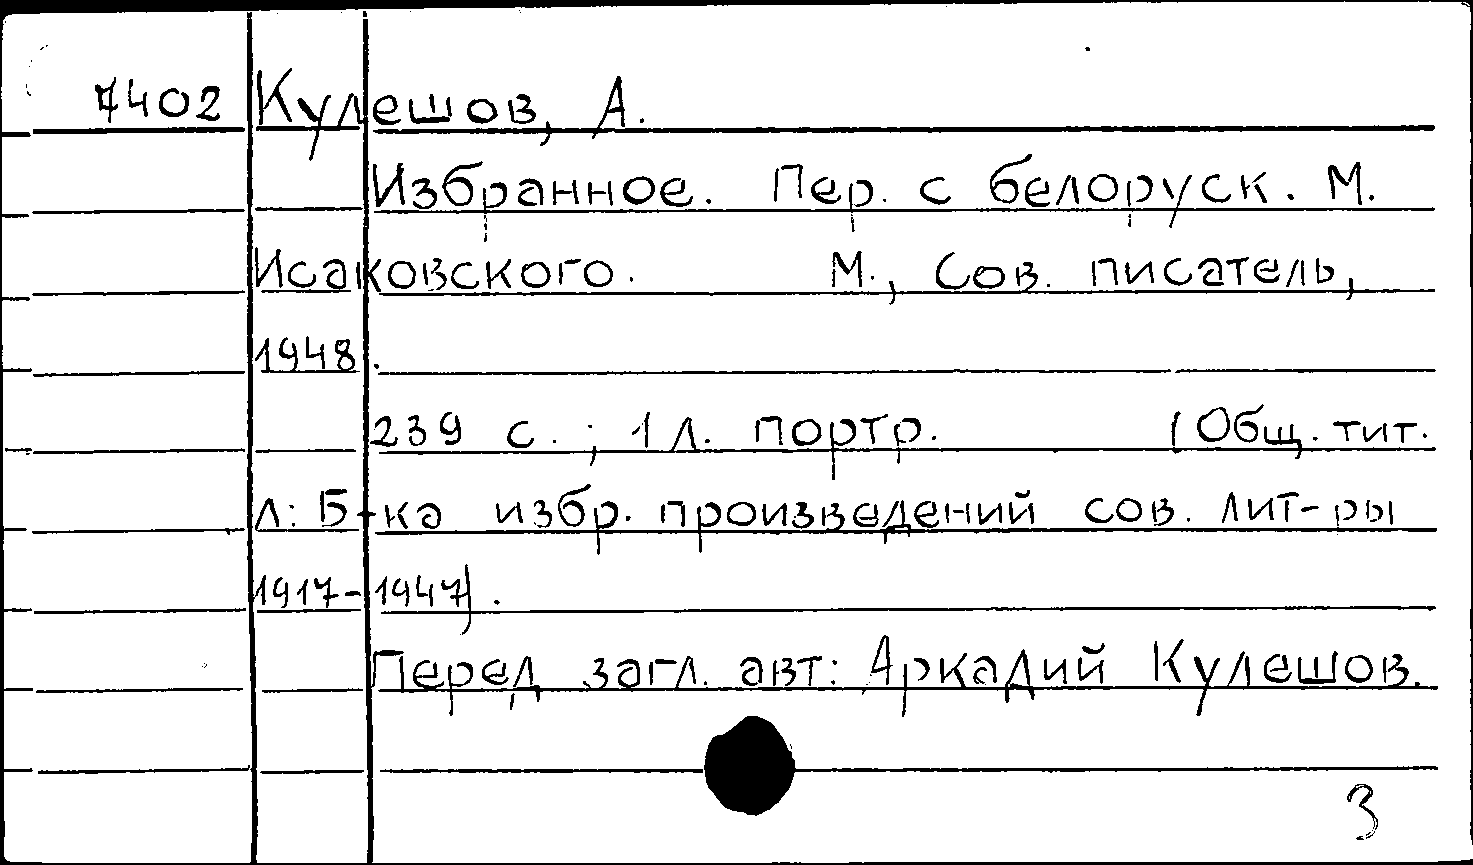 7402 Кулешов, А.
Избранное. Пер. с белоруск. М.
Исаковского. М., Сов. писатель,
1948.
239 с.; 1 л. портр. (Общ. тит.
л: Б-ка избр. произведений сов. лит-ры
1917-1947).
Перед загл. авт: Аркадий Кулешов.
3